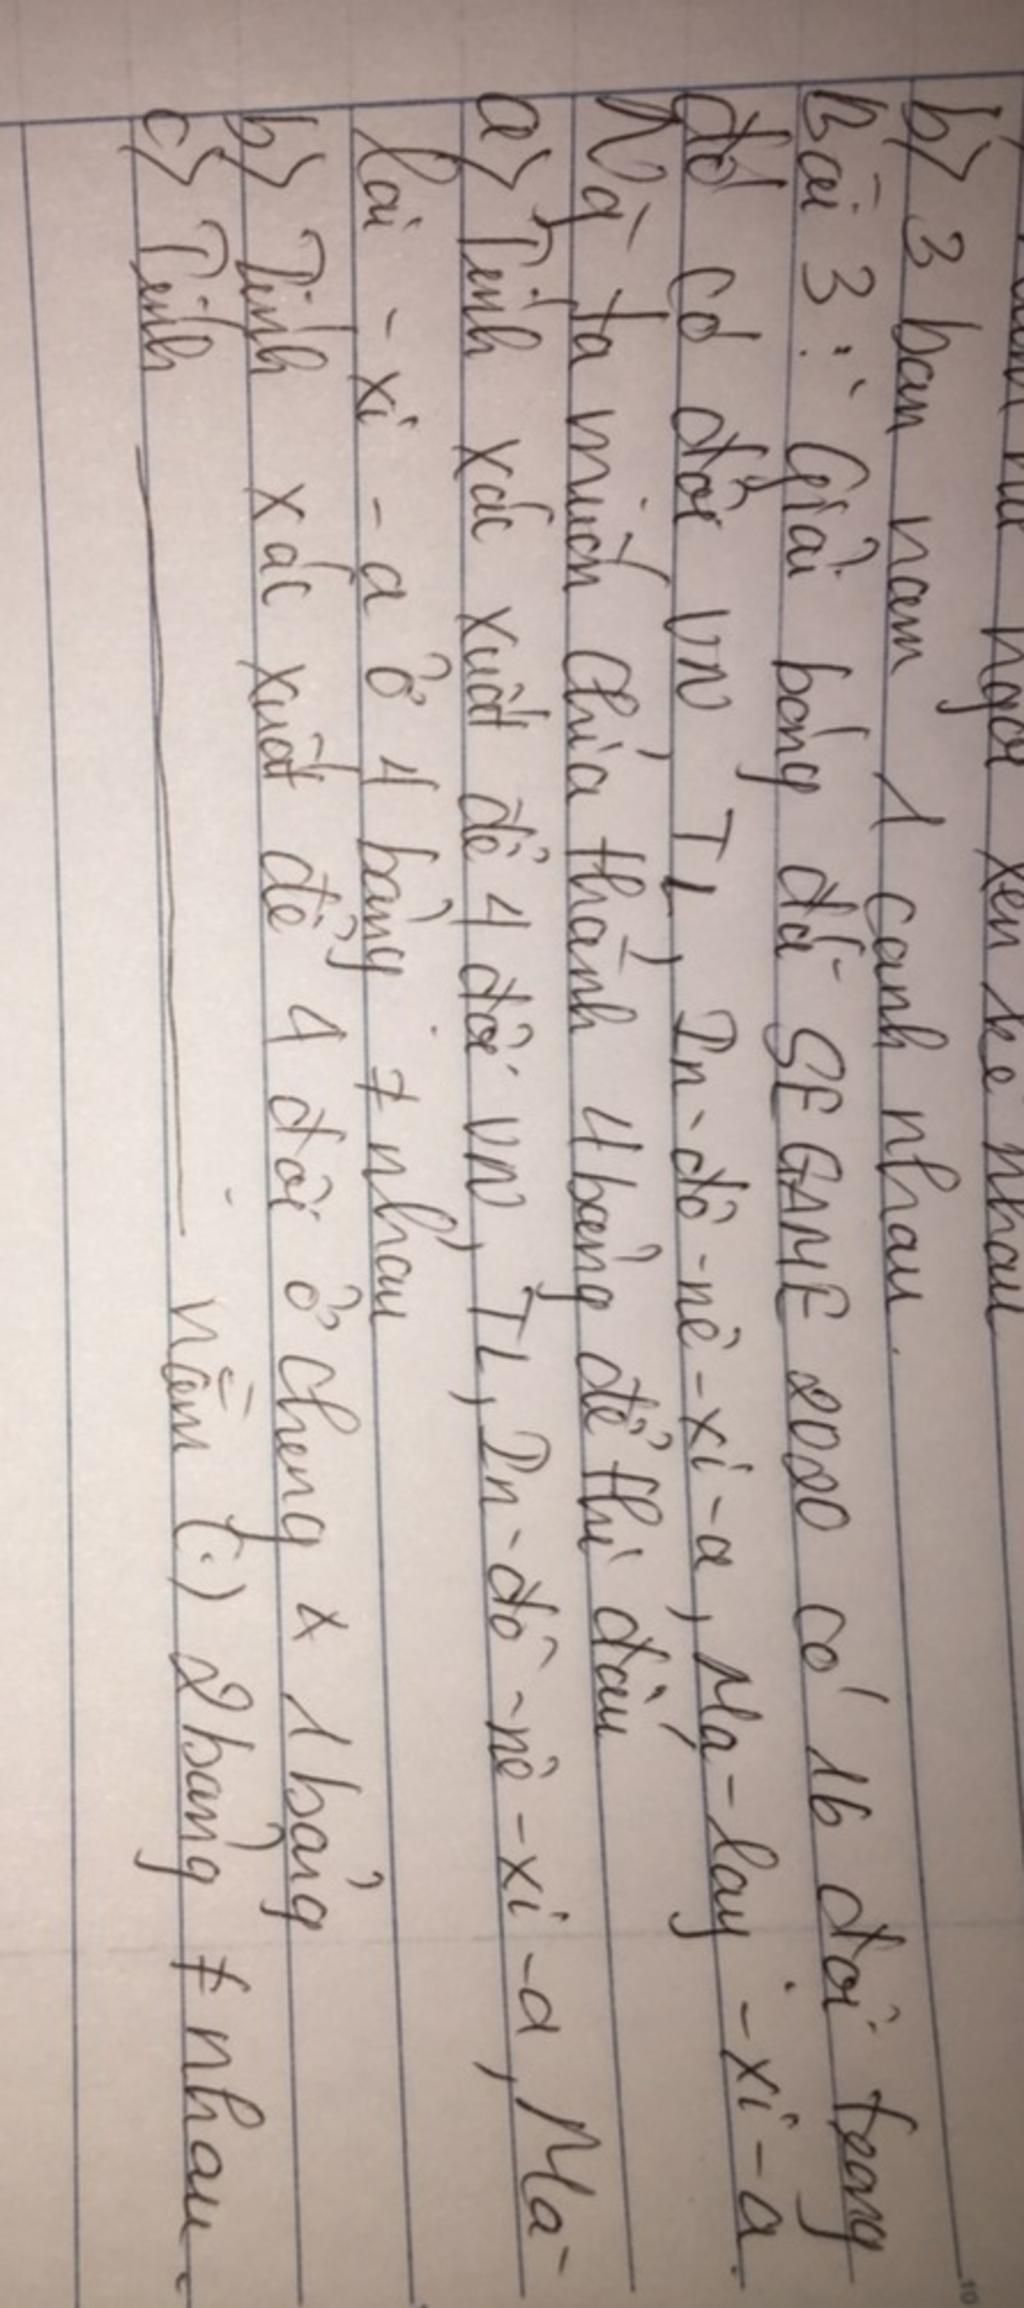 nhau
b) 3 bạn nam 1 cạnh nhau.
Bài 3: Giải bóng đá SEGAME 2020 có 16 đội trong
đó có đội VN TL, In-đô-nê-xi-a, Ma-lay-xi-a.
Ng ta muốn chia thành 4 bảng để thi đấu
a) Tính xác xuất để 4 đội VN, TL, In-đô-nê-xi-a, Ma-
lai-xi-a ở 4 bảng ≠ nhau
b) Tính xác xuất để 4 đội ở chung x 1 bảng
c) Tính ———— nằm (.) 2 bảng ≠ nhau.